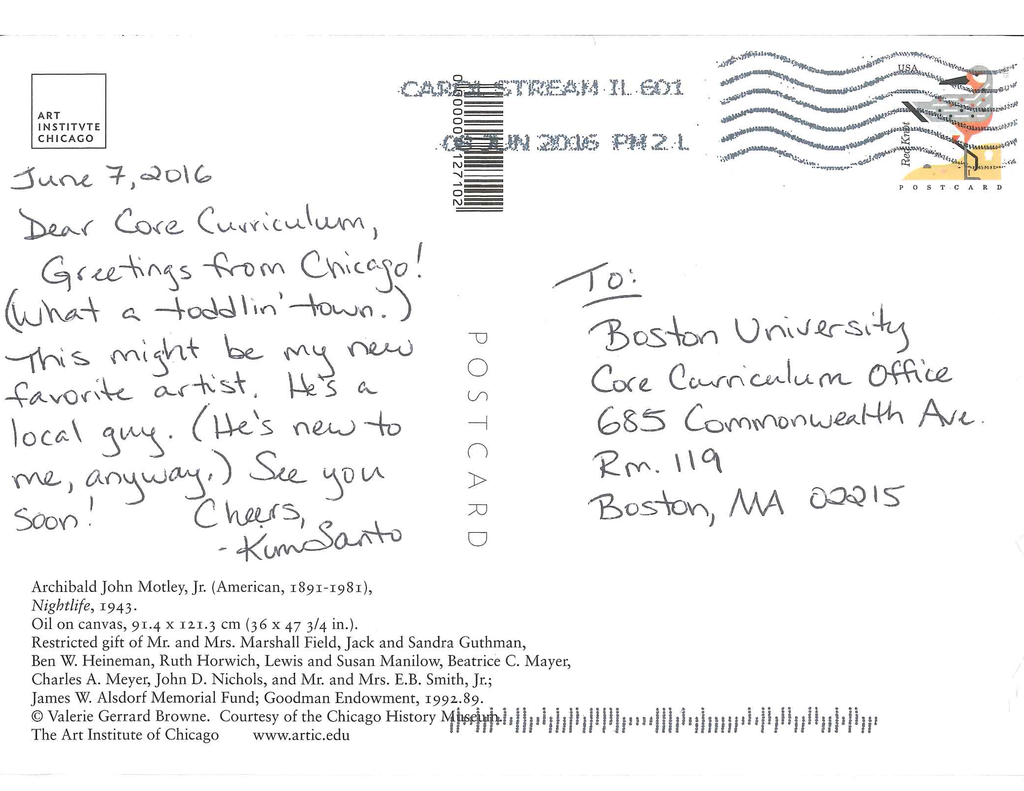 ART
INSTITVTE
CHICAGO
CAROL STREAM IL 601
JUN 2016 PM 2 L
00000 127102
USA
Red Knot
POSTCARD
June 7, 2016
Dear Core Curriculum,
Greetings from Chicago!
(What a toddlin' town.)
This might be my new
favorite artist. He's a
local guy. (He's new to
me, anyway.) See you
soon!
Cheers,
- Kim Santo
POSTCARD
To:
Boston University
Core Curriculum Office
685 Commonwealth Ave.
Rm. 119
Boston, MA 02215
Archibald John Motley, Jr. (American, 1891-1981),
Nightlife, 1943.
Oil on canvas, 91.4 x 121.3 cm (36 x 47 3/4 in.).
Restricted gift of Mr. and Mrs. Marshall Field, Jack and Sandra Guthman,
Ben W. Heineman, Ruth Horwich, Lewis and Susan Manilow, Beatrice C. Mayer,
Charles A. Meyer, John D. Nichols, and Mr. and Mrs. E.B. Smith, Jr.;
James W. Alsdorf Memorial Fund; Goodman Endowment, 1992.89.
© Valerie Gerrard Browne. Courtesy of the Chicago History Museum.
The Art Institute of Chicago www.artic.edu